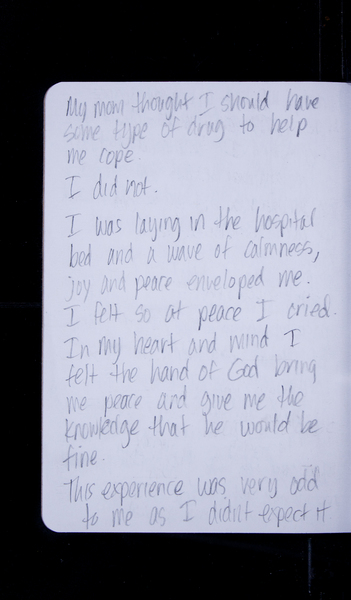 My mom thought I should have
some type of drug to help
me cope.
I did not.
I was laying in the hospital
bed and a wave of calmness,
joy and peace enveloped me.
I felt so at peace I cried.
In my heart and mind I
felt the hand of God bring
me peace and give me the
knowledge that he would be
fine.
This experience was very odd
to me as I didn't expect it